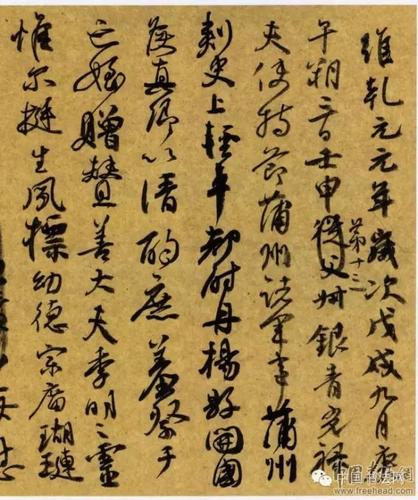 維乾元元年歲次戊戌九月庚
午朔三日壬申第十三從父叔銀青光禄
夫使持節蒲州諸軍事蒲州
刺史上輕車都尉丹楊縣開國
侯真卿以清酌庶羞祭于
亡姪贈贊善大夫季明之靈
惟爾挺生夙標幼德宗廟瑚璉
每慰
中国书法网
www.freehead.com